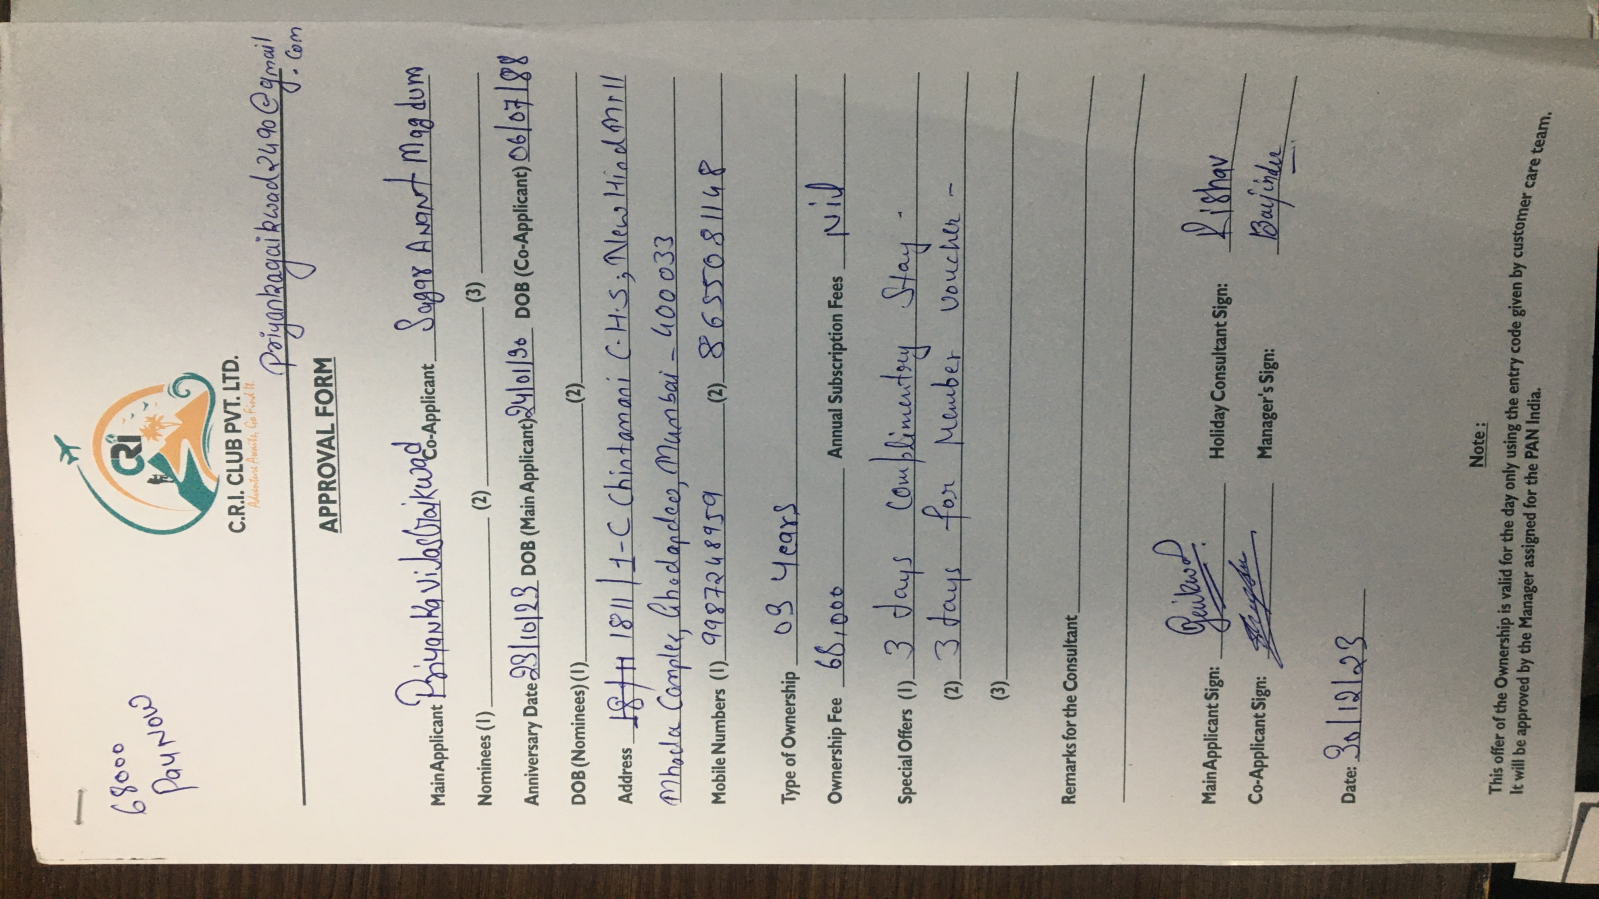 68000
Pay Now
CRI
C.R.I. CLUB PVT. LTD.
Adventure Awaits, Go Find It.
priyankagaikwad2490@gmail
.com
APPROVAL FORM
Main Applicant Priyanka Vilas Gaikwad Co-Applicant Sagar Anant Magdum
Nominees (1) (2) (3)
Anniversary Date 23/10/23 DOB (Main Applicant) 24/01/90 DOB (Co-Applicant) 06/07/88
DOB (Nominees) (1) (2)
Address 1811/1-C Chintamani C.H.S; New Hind Mill
Mhada Complex, Ghodapdeo, Mumbai - 400033
Mobile Numbers (1) 9987248959 (2) 8655081148
Type of Ownership 03 Years
Ownership Fee 68,000 Annual Subscription Fees Nil
Special Offers (1) 3 days Complimentry Stay.
(2) 3 days for Member Voucher -
(3)
Remarks for the Consultant
Main Applicant Sign: Gaikwad Holiday Consultant Sign: Rishav
Co-Applicant Sign: Manager's Sign: Baijinder
Date: 30/12/23
Note :
This offer of the Ownership is valid for the day only using the entry code given by customer care team.
It will be approved by the Manager assigned for the PAN India.